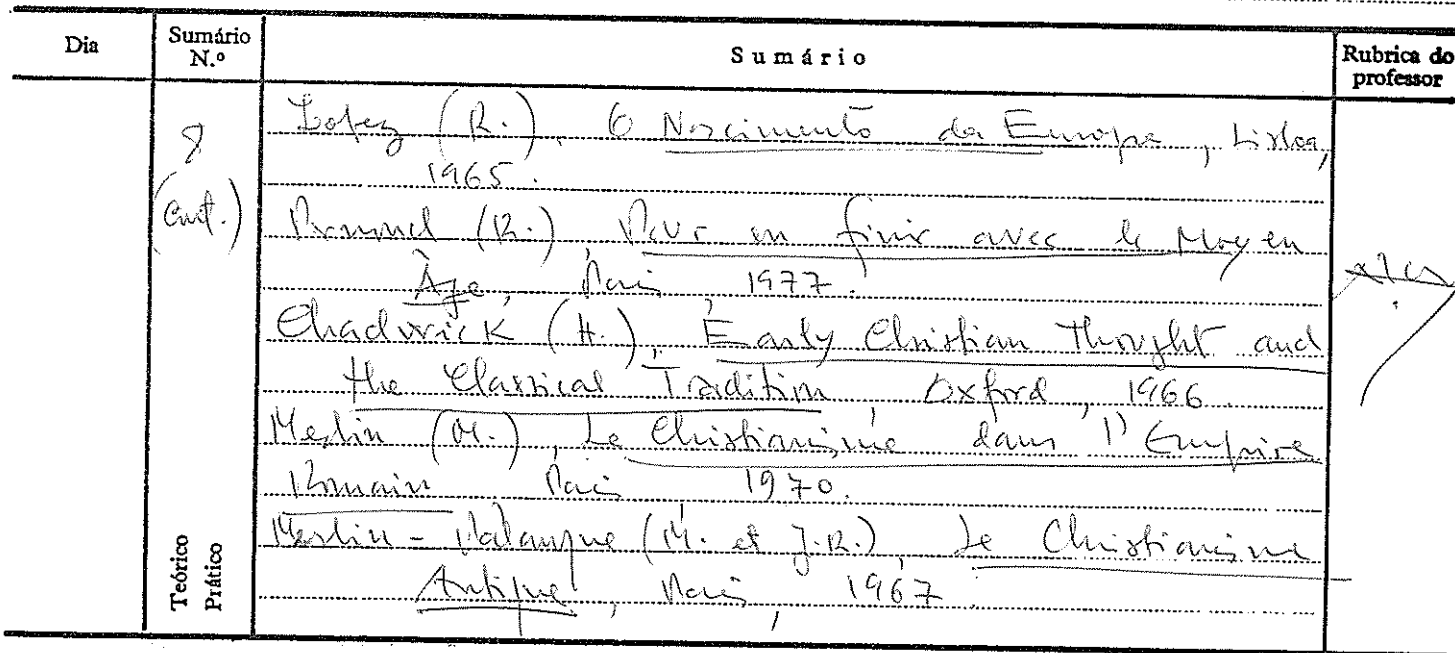 Dia
Sumário N.º
Sumário
Rubrica do professor
8 (Cont.)
Lopez (R.), O Nascimento da Europa, Lisboa,
1965.
Pernoud (R.), Pour en finir avec le Moyen
Âge, Paris, 1977.
Chadwick (H.), Early Christian Thought and
the Classical Tradition, Oxford, 1966.
Meslin (M.), Le Christianisme dans l'Empire
Romain, Paris, 1970.
Meslin - Palanque (M. et J.R.), Le Christianisme
Antique, Paris, 1967.
Teórico
Prático